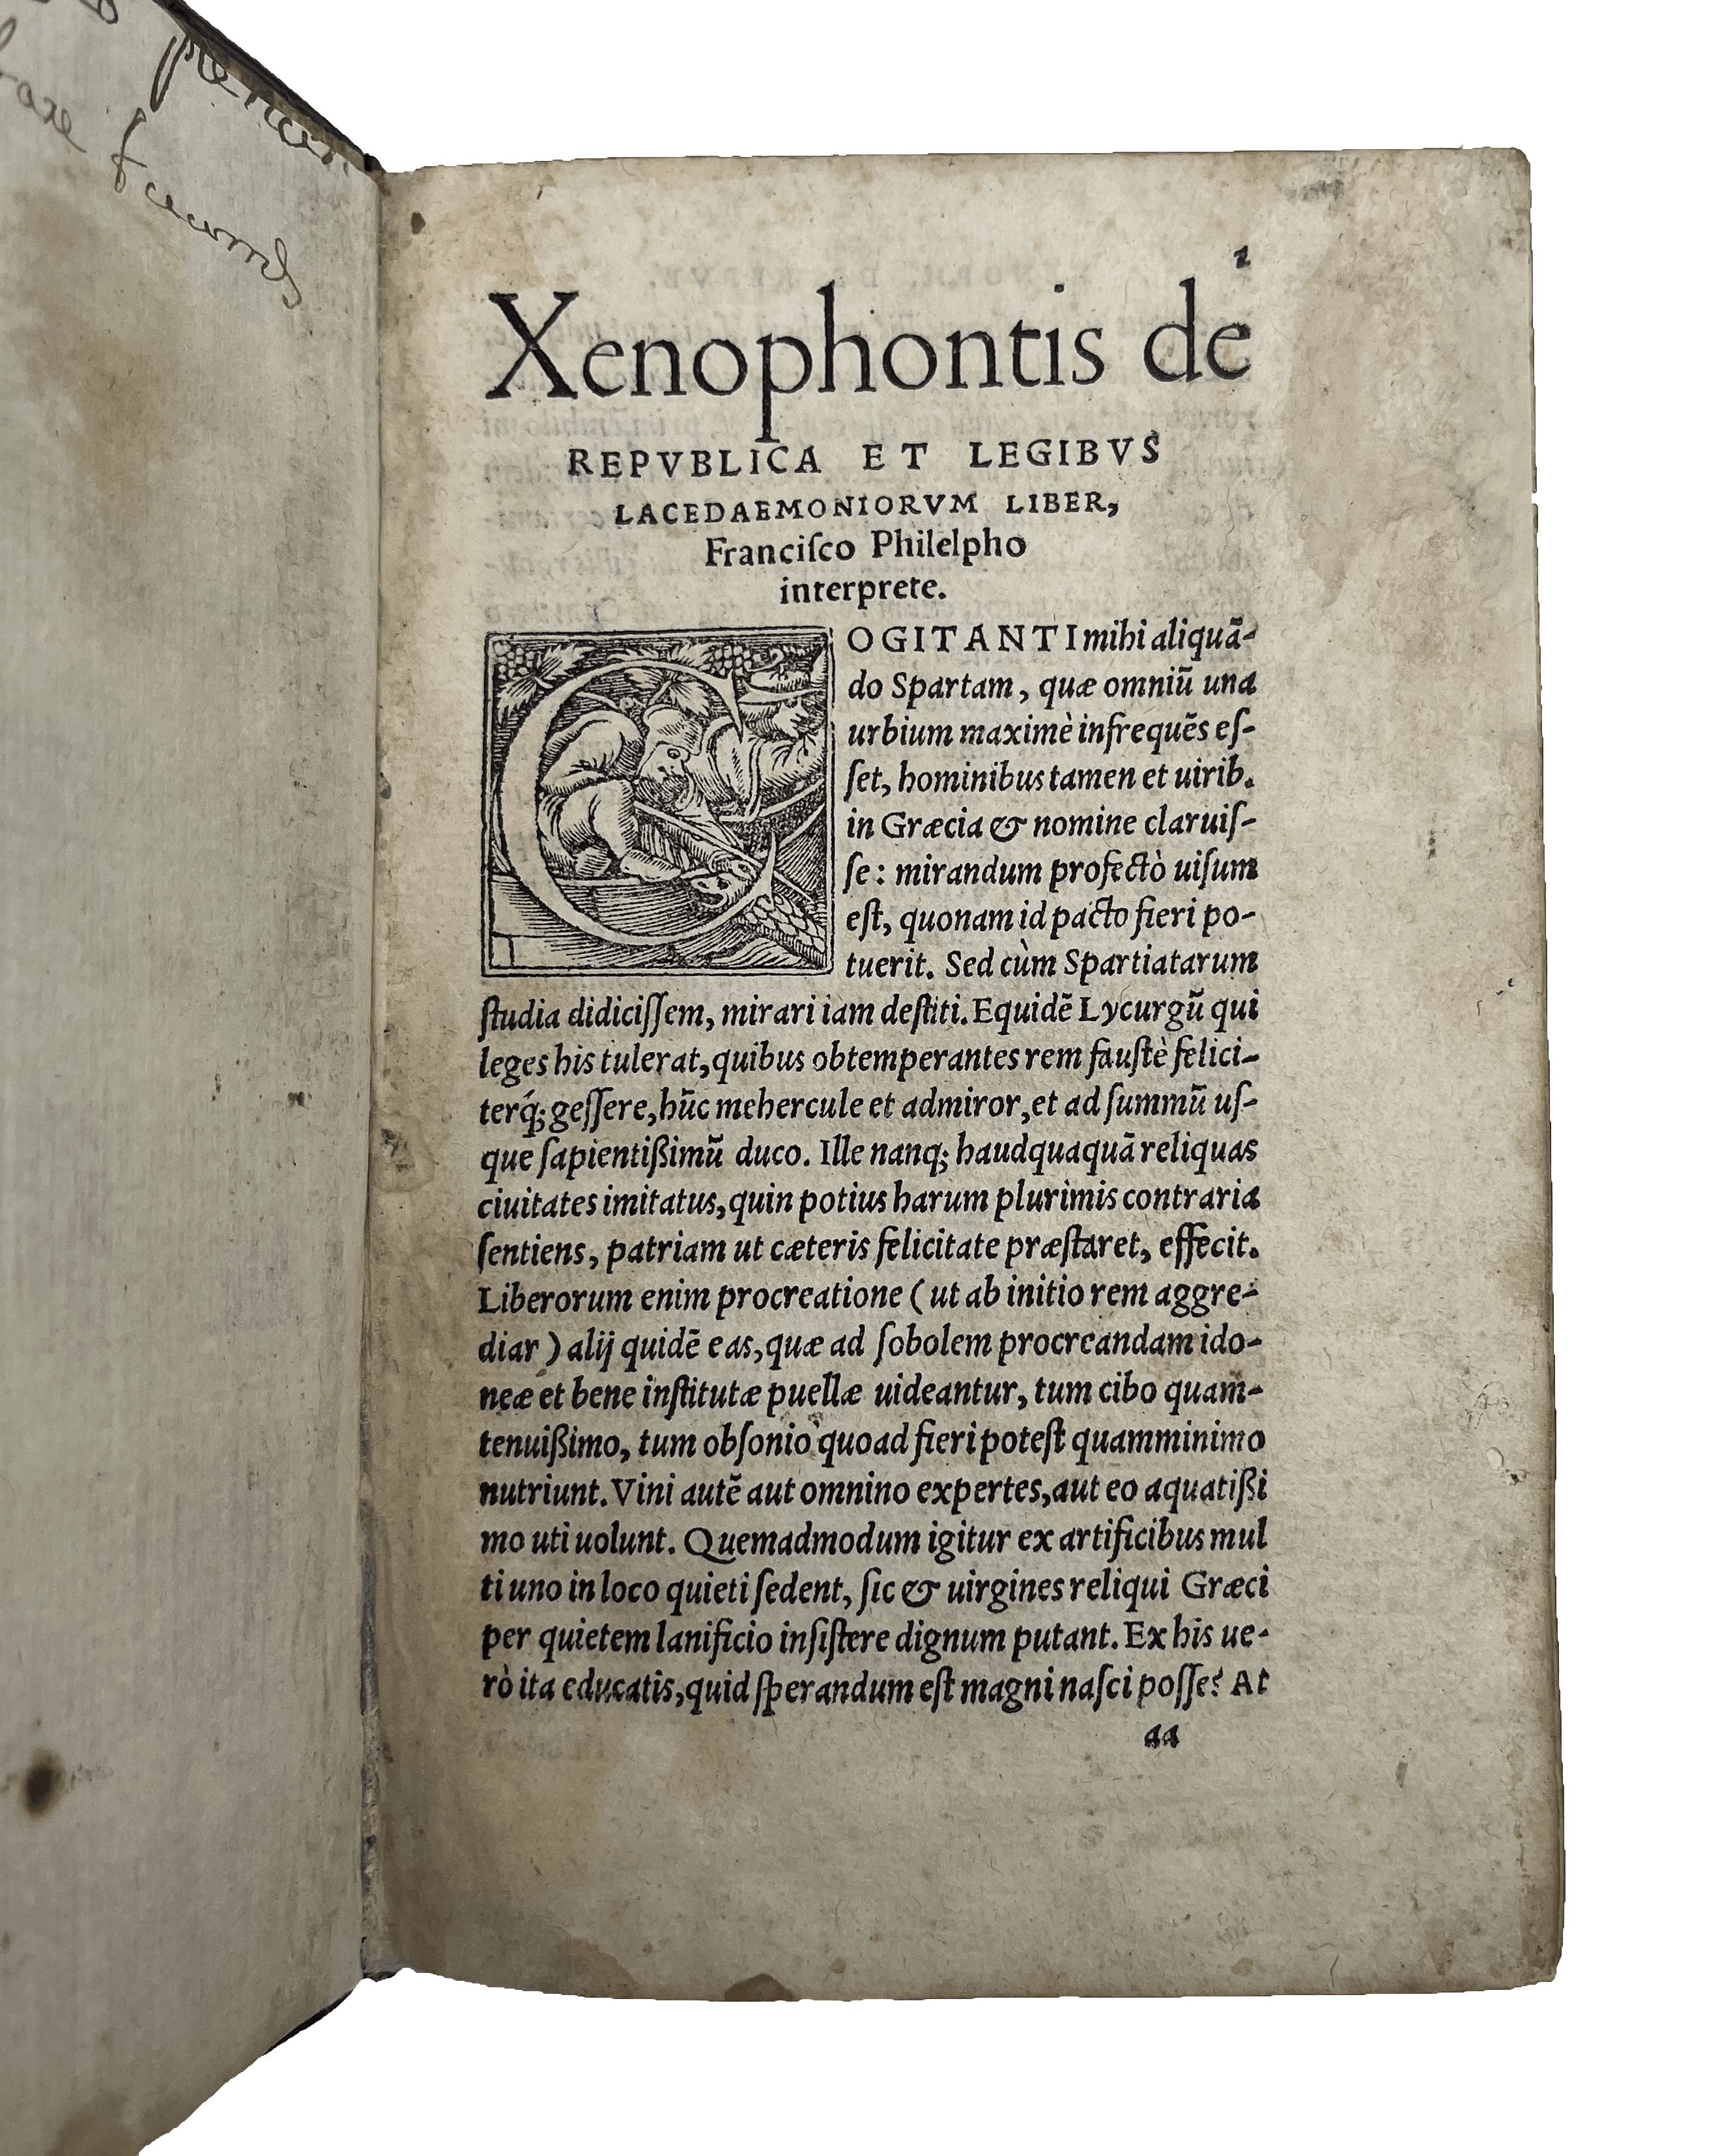 1
Xenophontis de
REPVBLICA ET LEGIBVS
LACEDAEMONIORVM LIBER,
Franciſco Philelpho
interprete.
COGITANTI mihi aliquā-
do Spartam, quæ omniū una
urbium maximè infrequēs eſ-
ſet, hominibus tamen et uirib.
in Græcia & nomine claruiſ-
ſe: mirandum profectò uiſum
eſt, quonam id pacto fieri po-
tuerit. Sed cùm Spartiatarum
ſtudia didiciſſem, mirari iam deſtiti. Equidē Lycurgū qui
leges his tulerat, quibus obtemperantes rem fauſtè felici-
terq́; geſſere, hūc mehercule et admiror, et ad ſummū uſ-
que ſapientißimū duco. Ille nanq; haudquaquā reliquas
ciuitates imitatus, quin potius harum plurimis contraria
ſentiens, patriam ut cæteris felicitate præſtaret, effecit.
Liberorum enim procreatione (ut ab initio rem aggre-
diar) alij quidē eas, quæ ad ſobolem procreandam ido-
neæ et bene inſtitutæ puellæ uideantur, tum cibo quam-
tenuißimo, tum obſonio quoad fieri poteſt quamminimo
nutriunt. Vini autē aut omnino expertes, aut eo aquatißi
mo uti uolunt. Quemadmodum igitur ex artificibus mul
ti uno in loco quieti ſedent, ſic & uirgines reliqui Græci
per quietem lanificio inſiſtere dignum putant. Ex his ue-
rò ita educatis, quid ſperandum eſt magni naſci poſſe? At
aa